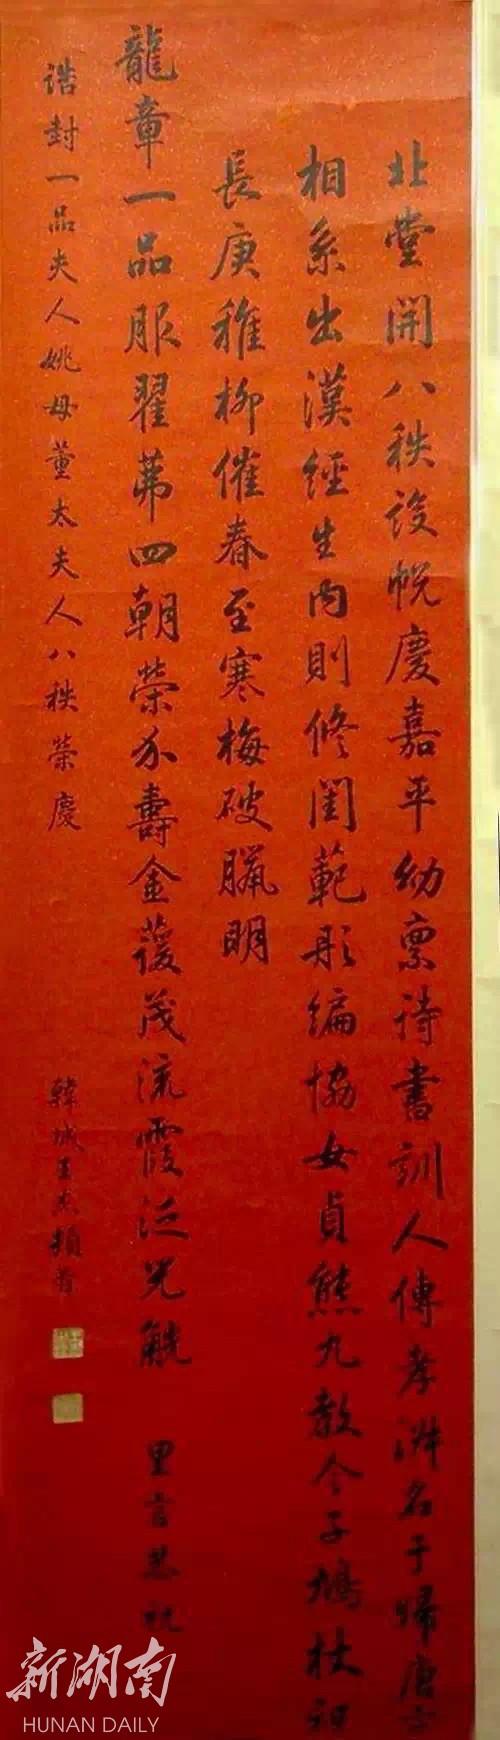 北堂開八秩設帨慶嘉平幼稟詩書訓人傳孝淑名于歸唐
相系出漢經生內則修閨範彤編協女貞熊丸教令子鳩杖祝
長庚稚柳催春至寒梅破臘明
龍章一品服翟茀四朝榮介壽金萲茂流霞泛兕觥 里言恭祝
誥封一品夫人姚母董太夫人八秩榮慶 韓城王杰頓首
新湖南
HUNAN DAILY